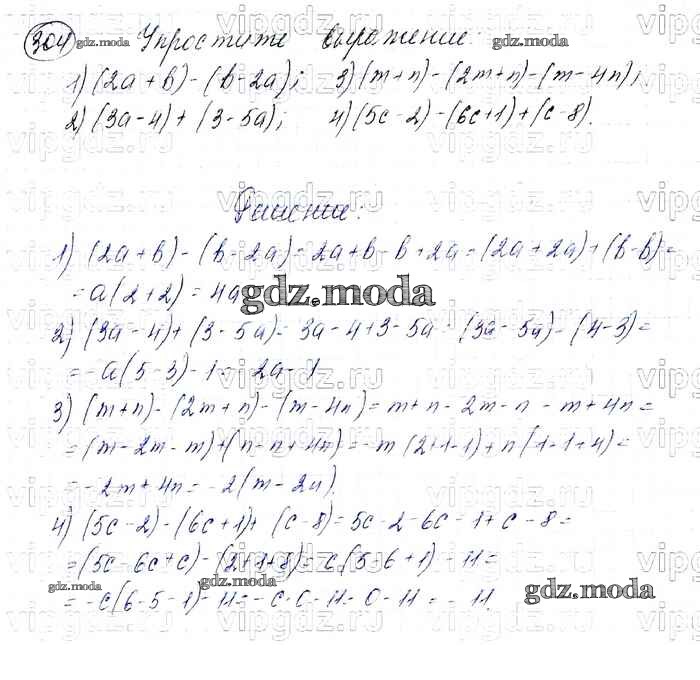 304 Упростите выражение:
1) (2a + b) - (b - 2a); 3) (m + n) - (2m + n) - (m - 4n);
2) (3a - 4) + (3 - 5a); 4) (5c - 2) - (6c + 1) + (c - 8).
Решение:
1) (2a + b) - (b - 2a) = 2a + b - b + 2a = (2a + 2a) + (b - b) =
= a(2 + 2) = 4a
2) (3a - 4) + (3 - 5a) = 3a - 4 + 3 - 5a = (3a - 5a) - (4 - 3) =
= -a(5 - 3) - 1 = -2a - 1
3) (m + n) - (2m + n) - (m - 4n) = m + n - 2m - n - m + 4n =
= (m - 2m - m) + (n - n + 4n) = -m(2 + 1 - 1) + n(1 - 1 + 4) =
= -2m + 4n = -2(m - 2n).
4) (5c - 2) - (6c + 1) + (c - 8) = 5c - 2 - 6c - 1 + c - 8 =
= (5c - 6c + c) - (2 + 1 + 8) = c(5 - 6 + 1) - 11 =
= -c(6 - 5 - 1) - 11 = -c · 0 - 11 = 0 - 11 = -11
gdz.moda
vipgdz.ru